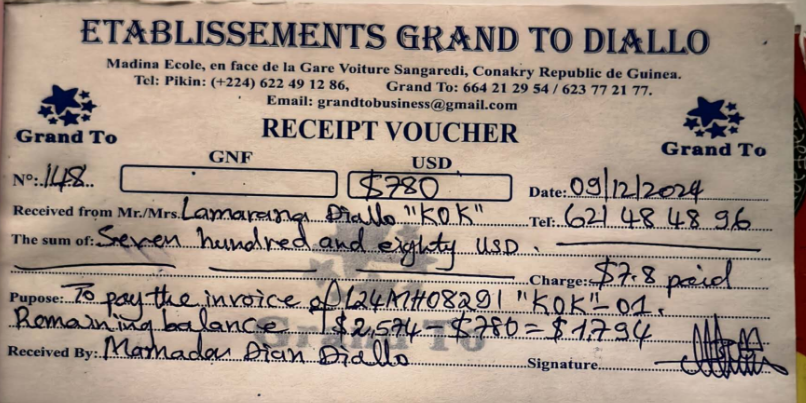 ETABLISSEMENTS GRAND TO DIALLO
Madina Ecole, en face de la Gare Voiture Sangaredi, Conakry Republic de Guinea.
Tel: Pikin: (+224) 622 49 12 86, Grand To: 664 21 29 54 / 623 77 21 77.
Email: grandtobusiness@gmail.com
Grand To RECEIPT VOUCHER Grand To
GNF USD
Nº:.148.. $780 Date: 09/12/2024
Received from Mr./Mrs. Lamarana Diallo "KOK" Tel: 621 48 48 96
The sum of: Seven hundred and eighty USD.
Charge: $7.8 paid
Pupose: To pay the invoice of L24MH08291 "KOK"-01.
Remaining balance $2,574 - $780 = $1,794
Grand To
Received By: Mamadou Dian Diallo Signature